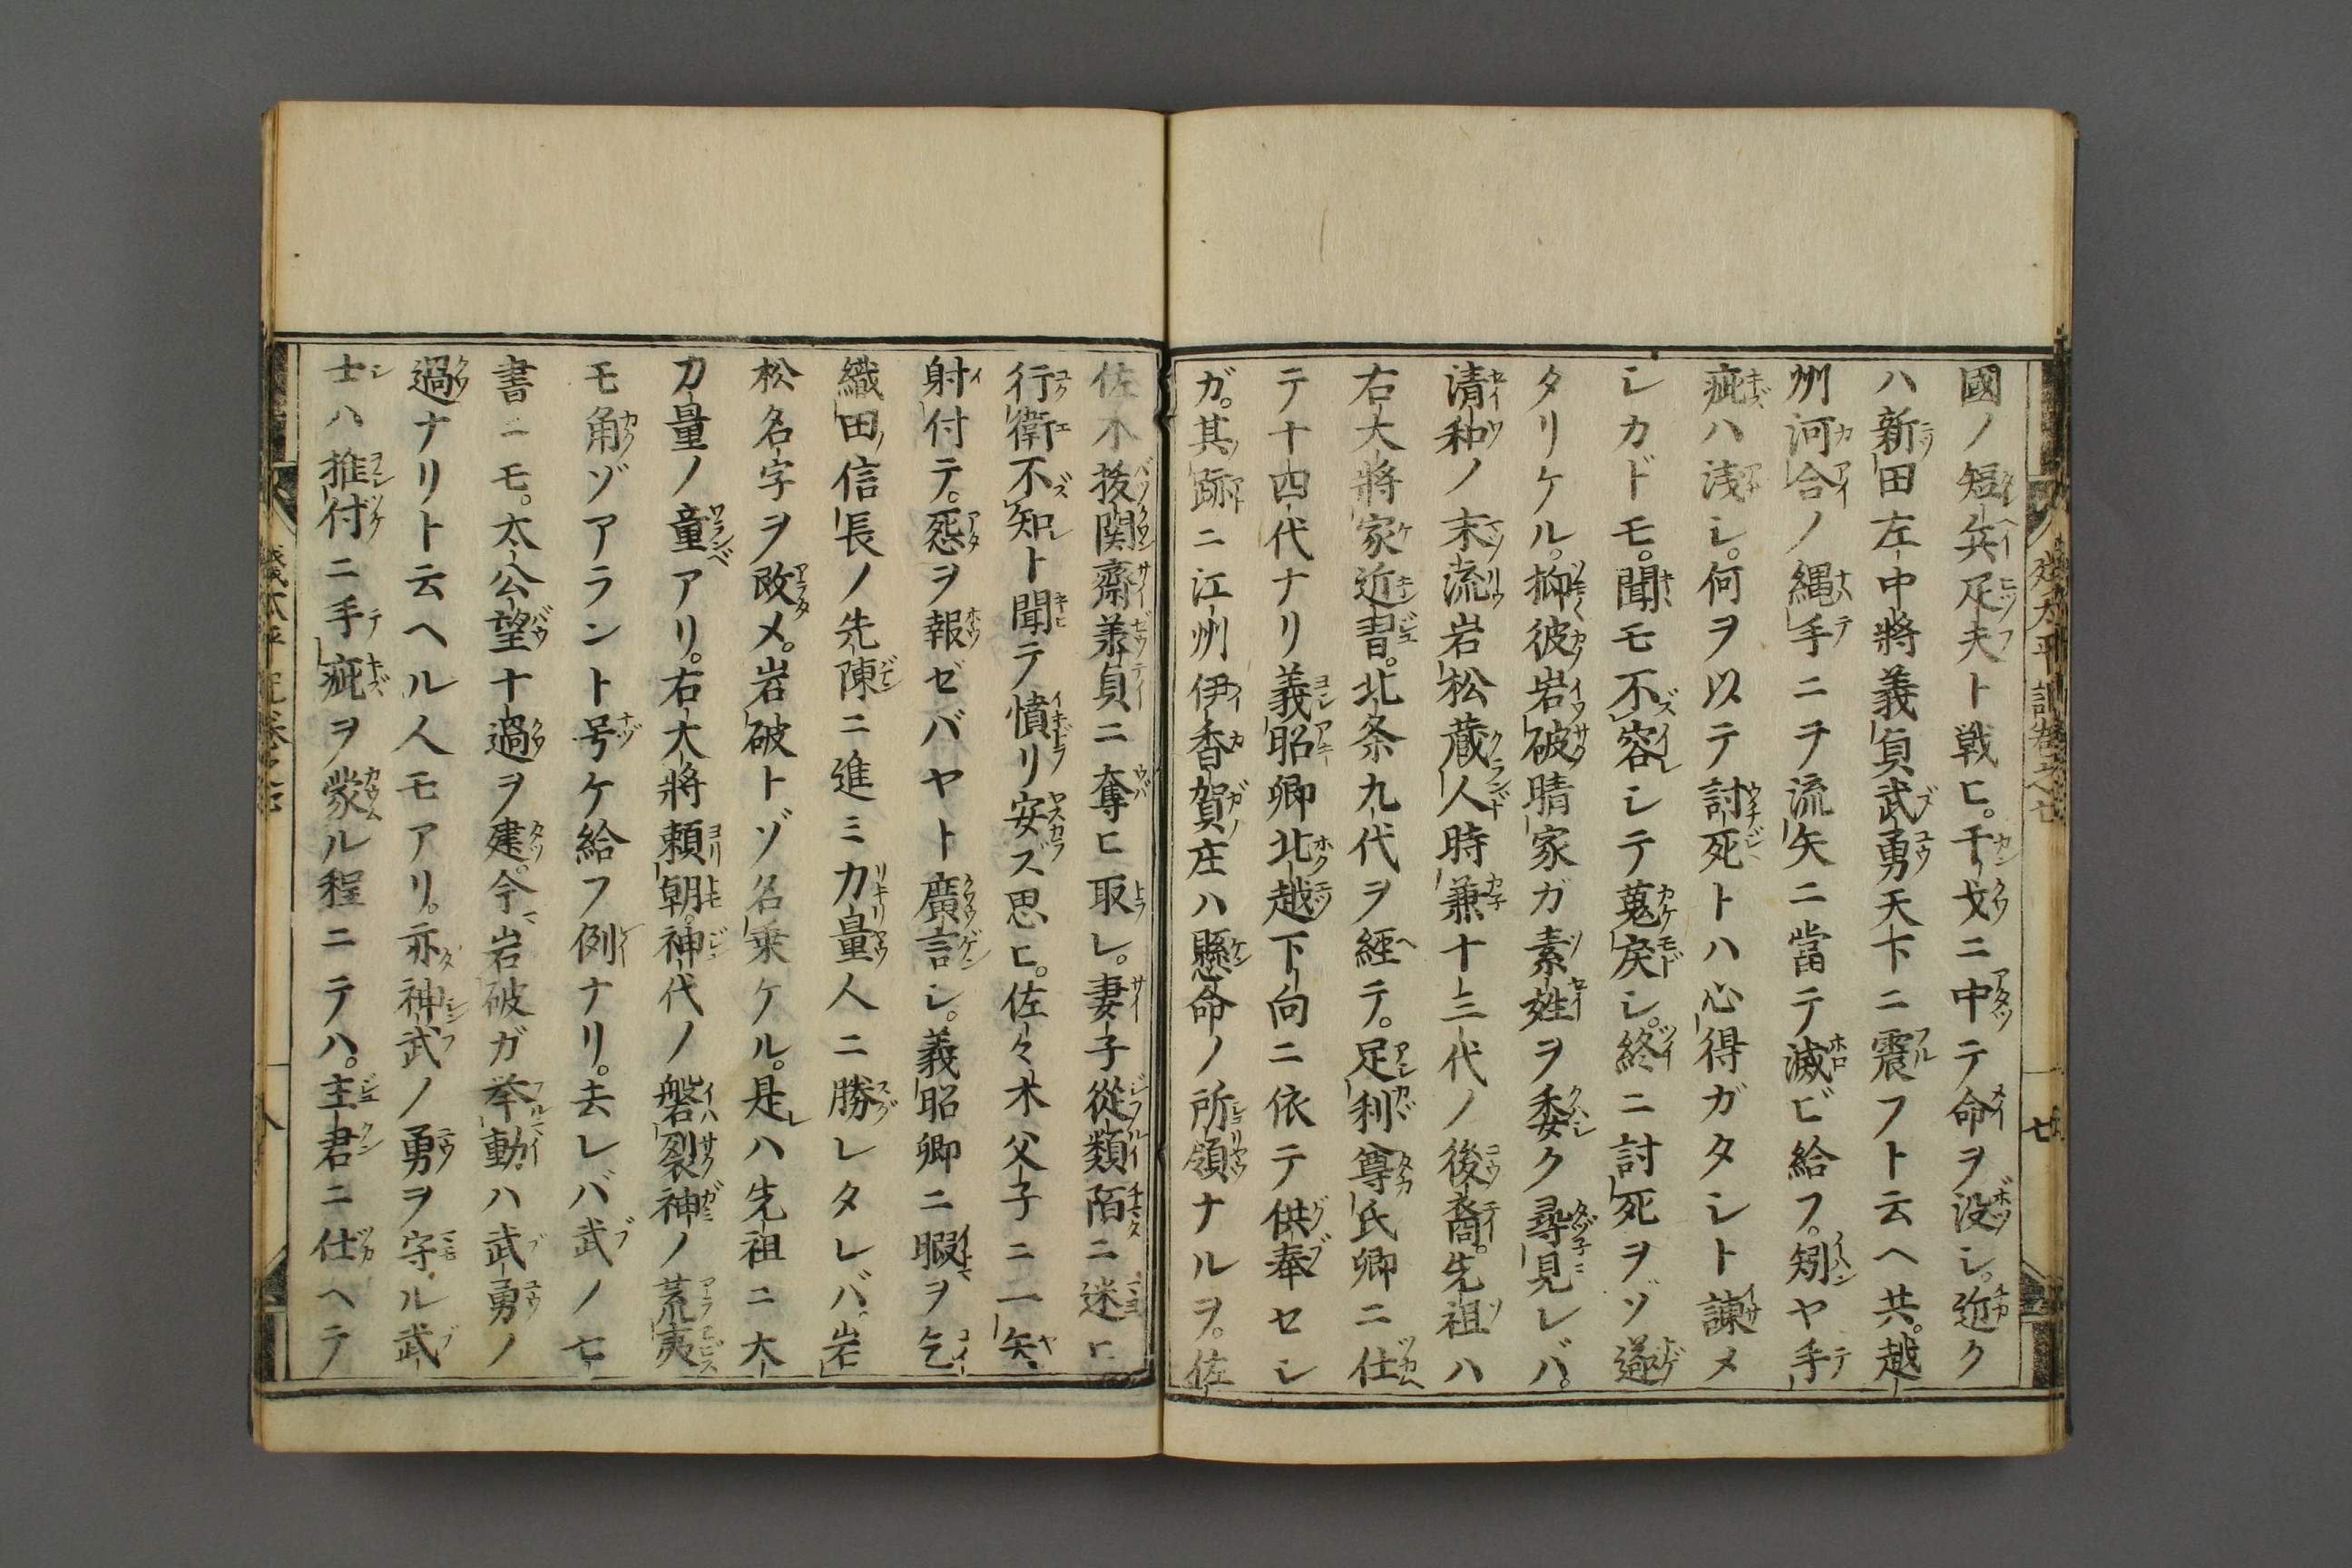 國ノ短兵疋夫ト戦ヒ。干戈ニ中テ命ヲ没シ。近ク
ハ新田左中將義貞武勇天下ニ震フト云ヘ共。越
州河合ノ縄手ニヲ流矢ニ當テ滅ビ給フ。矧ヤ手
疵ハ浅シ。何ヲ以テ討死トハ心得ガタシト諫メ
シカドモ。聞モ不容シテ蒐戻シ。終ニ討死ヲゾ遂
タリケル。抑彼岩破晴家ガ素姓ヲ委ク尋見レバ。
清和ノ末流岩松蔵人時兼十三代ノ後裔。先祖ハ
右大將家近習。北条九代ヲ經テ。足利尊氏卿ニ仕
テ十四代ナリ義昭卿北越下向ニ依テ供奉セシ
ガ。其跡ニ江州伊香賀庄ハ懸命ノ所領ナルヲ。佐
佐木抜関齋兼貞ニ奪ヒ取レ。妻子從類陌ニ迷ヒ
行衛不知ト聞テ憤リ安ズ思ヒ。佐々木父子ニ一矢
射付テ。怨ヲ報ゼバヤト廣言シ。義昭卿ニ暇ヲ乞
織田信長ノ先陳ニ進ミ力量人ニ勝レタレバ。岩
松名字ヲ改メ。岩破トゾ名乗ケル。是ハ先祖ニ大
力量ノ童アリ。右大將頼朝。神代ノ磐裂神ノ荒夷
モ角ゾアラント号ケ給フ例ナリ。去レバ武ノ七
書ニモ。太公望十過ヲ建。今岩破ガ挙動ハ武勇ノ
過ナリト云ヘル人モアリ。亦神武ノ勇ヲ守ル武
士ハ推付ニ手疵ヲ蒙ル程ニテハ。主君ニ仕ヘテ